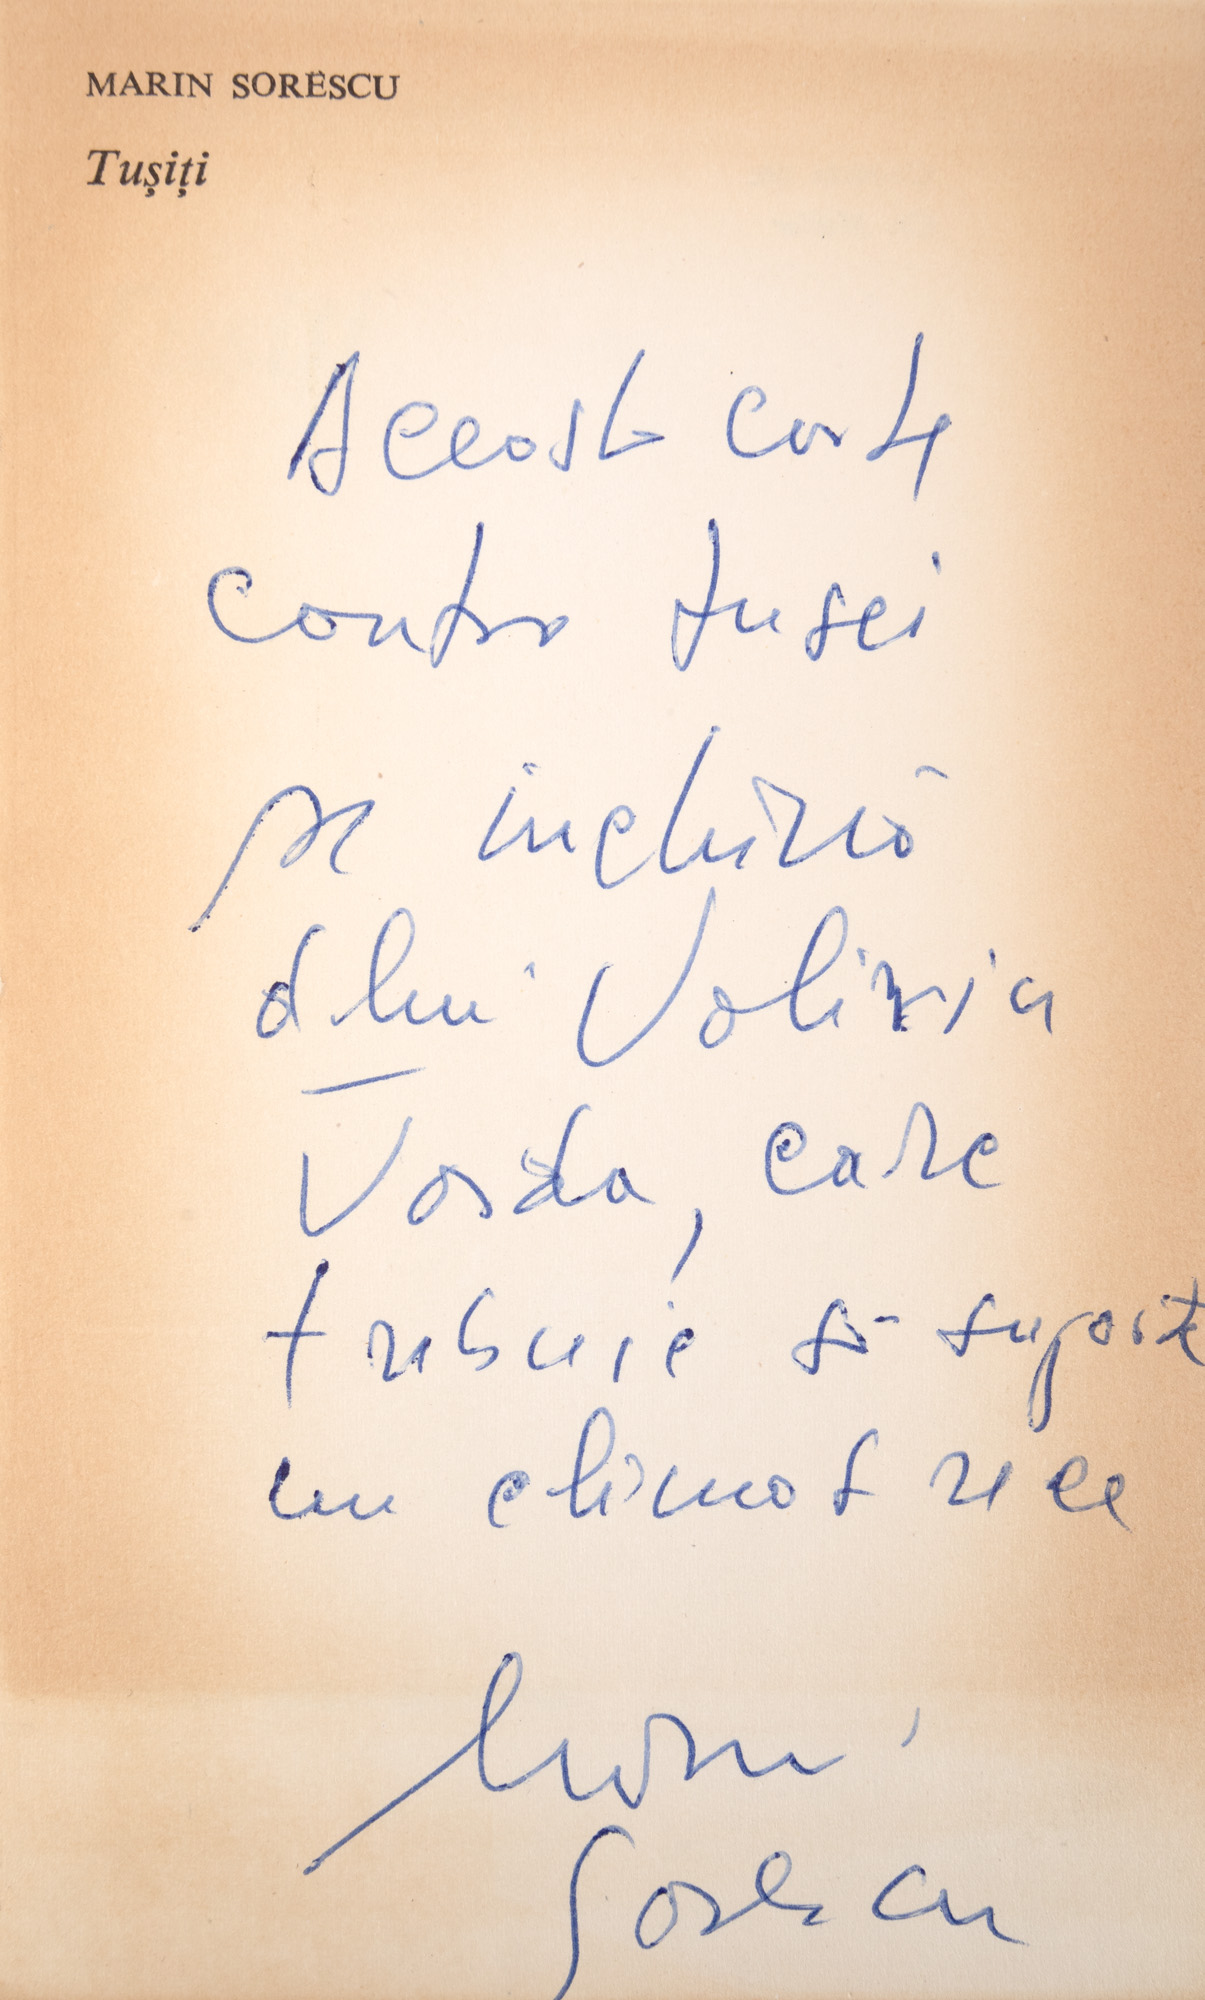 MARIN SORESCU
Tușiți
Această carte
contra tusei
se închină
dlui Valiriu
Varda, care
trebuie să suporte
un climat rece
Marin
Sorescu